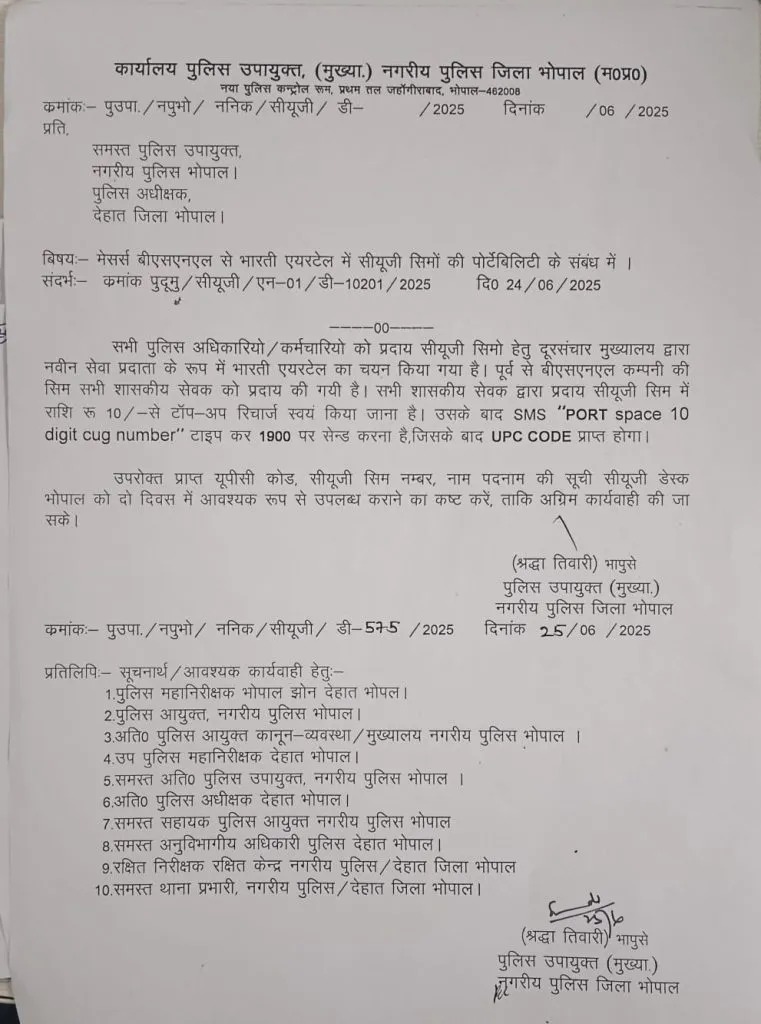 कार्यालय पुलिस उपायुक्त, (मुख्या.) नगरीय पुलिस जिला भोपाल (म0प्र0)
नया पुलिस कन्ट्रोल रूम, प्रथम तल जहॉगीराबाद, भोपाल–462008
कमांकः– पुउपा./नपुभो/ ननिक/सीयूजी/ डी– /2025 दिनांक /06 /2025
प्रति,
समस्त पुलिस उपायुक्त,
नगरीय पुलिस भोपाल।
पुलिस अधीक्षक,
देहात जिला भोपाल।
बिषयः– मेसर्स बीएसएनएल से भारती एयरटेल में सीयूजी सिमों की पोर्टेबिलिटी के संबंध में ।
संदर्भः– कमांक पुदूमु/सीयूजी/एन–01/डी–10201/2025 दि0 24/06/2025
----00----
सभी पुलिस अधिकारियो/कर्मचारियो को प्रदाय सीयूजी सिमो हेतु दूरसंचार मुख्यालय द्वारा
नवीन सेवा प्रदाता के रूप में भारती एयरटेल का चयन किया गया है। पूर्व से बीएसएनएल कम्पनी की
सिम सभी शासकीय सेवक को प्रदाय की गयी है। सभी शासकीय सेवक द्वारा प्रदाय सीयूजी सिम में
राशि रू 10/–से टॉप–अप रिचार्ज स्वयं किया जाना है। उसके बाद SMS “PORT space 10
digit cug number” टाइप कर 1900 पर सेन्ड करना है,जिसके बाद UPC CODE प्राप्त होगा।
उपरोक्त प्राप्त यूपीसी कोड, सीयूजी सिम नम्बर, नाम पदनाम की सूची सीयूजी डेस्क
भोपाल को दो दिवस में आवश्यक रूप से उपलब्ध कराने का कष्ट करें, ताकि अग्रिम कार्यवाही की जा
सके।
(श्रद्धा तिवारी) भापुसे
पुलिस उपायुक्त (मुख्या.)
नगरीय पुलिस जिला भोपाल
कमांकः– पुउपा./नपुभो/ ननिक/सीयूजी/ डी–575 /2025 दिनांक 25/06 /2025
प्रतिलिपिः– सूचनार्थ/आवश्यक कार्यवाही हेतुः–
1.पुलिस महानिरीक्षक भोपाल झोन देहात भोपल।
2.पुलिस आयुक्त, नगरीय पुलिस भोपाल।
3.अति0 पुलिस आयुक्त कानून–व्यवस्था/मुख्यालय नगरीय पुलिस भोपाल ।
4.उप पुलिस महानिरीक्षक देहात भोपाल।
5.समस्त अति0 पुलिस उपायुक्त, नगरीय पुलिस भोपाल ।
6.अति0 पुलिस अधीक्षक देहात भोपाल।
7.समस्त सहायक पुलिस आयुक्त नगरीय पुलिस भोपाल
8.समस्त अनुविभागीय अधिकारी पुलिस देहात भोपाल।
9.रक्षित निरीक्षक रक्षित केन्द्र नगरीय पुलिस/देहात जिला भोपाल
10.समस्त थाना प्रभारी, नगरीय पुलिस/देहात जिला भोपाल।
25/6
(श्रद्धा तिवारी) भापुसे
पुलिस उपायुक्त (मुख्या.)
नगरीय पुलिस जिला भोपाल